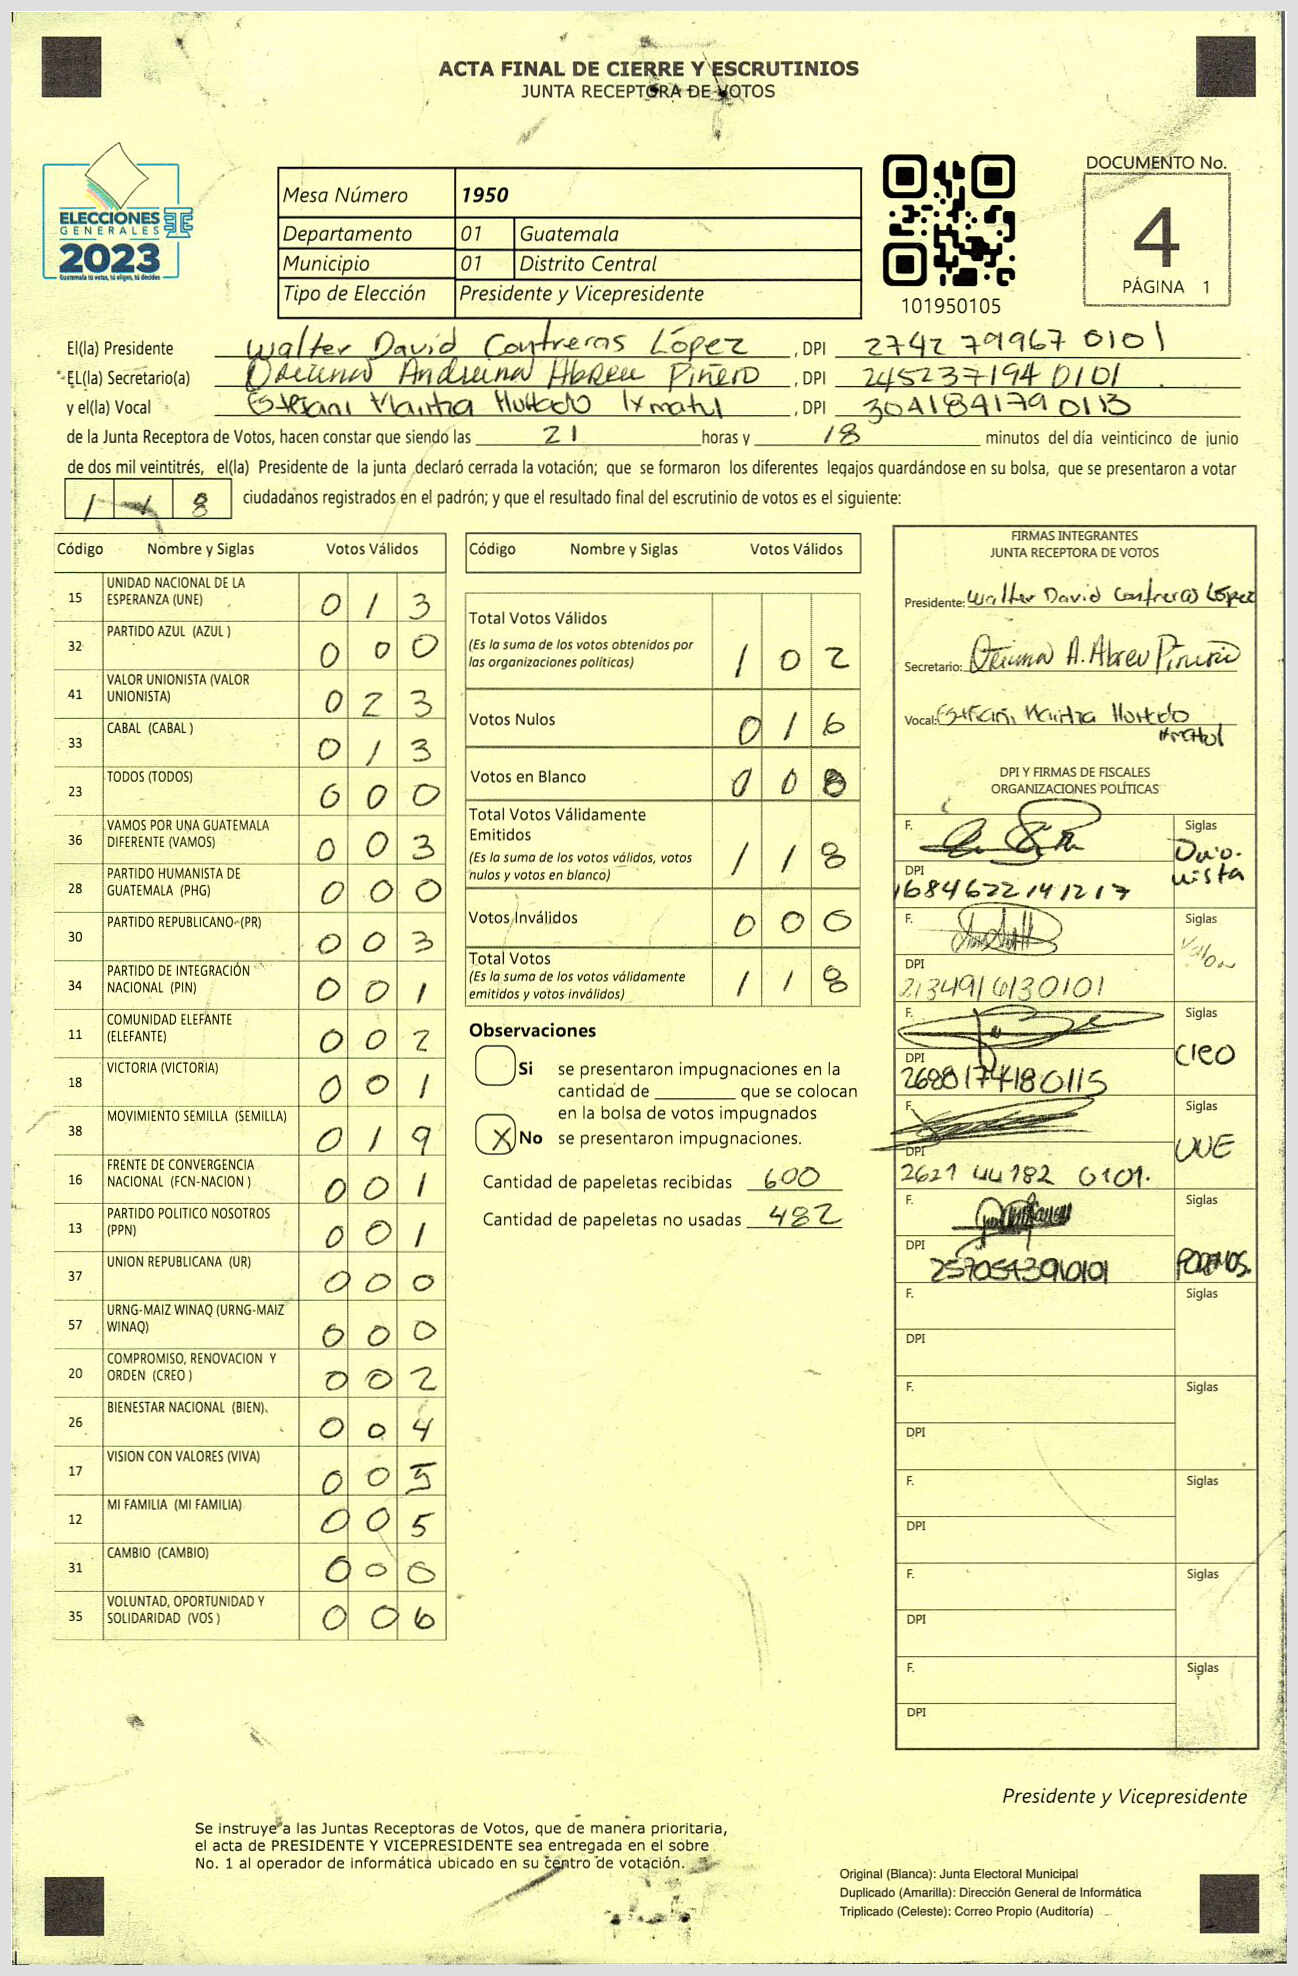 ACTA FINAL DE CIERRE Y ESCRUTINIOS
JUNTA RECEPTORA DE VOTOS
ELECCIONES
GENERALES
2023
Guatemala tú votas, tú eliges, tú decides
Mesa Número 1950
Departamento 01 Guatemala
Municipio 01 Distrito Central
Tipo de Elección Presidente y Vicepresidente
101950105
DOCUMENTO No.
4
PÁGINA 1
El(la) Presidente Walter David Contreras López, DPI 2742 79967 0101
EL(la) Secretario(a) Andreina Abreu Piñero, DPI 245237194 0101
y el(la) Vocal Hurtado Ixmatul, DPI 304184179 0113
de la Junta Receptora de Votos, hacen constar que siendo las 21 horas y 18 minutos del día veinticinco de junio
de dos mil veintitrés, el(la) Presidente de la junta declaró cerrada la votación; que se formaron los diferentes legajos quardándose en su bolsa, que se presentaron a votar
1 1 8 ciudadanos registrados en el padrón; y que el resultado final del escrutinio de votos es el siguiente:
Código Nombre y Siglas Votos Válidos
15 UNIDAD NACIONAL DE LA
ESPERANZA (UNE) 0 1 3
32 PARTIDO AZUL (AZUL ) 0 0 0
41 VALOR UNIONISTA (VALOR
UNIONISTA) 0 2 3
33 CABAL (CABAL ) 0 1 3
23 TODOS (TODOS) 0 0 0
36 VAMOS POR UNA GUATEMALA
DIFERENTE (VAMOS) 0 0 3
28 PARTIDO HUMANISTA DE
GUATEMALA (PHG) 0 0 0
30 PARTIDO REPUBLICANO (PR) 0 0 3
34 PARTIDO DE INTEGRACIÓN
NACIONAL (PIN) 0 0 1
11 COMUNIDAD ELEFANTE
(ELEFANTE) 0 0 2
18 VICTORIA (VICTORIA) 0 0 1
38 MOVIMIENTO SEMILLA (SEMILLA) 0 1 9
16 FRENTE DE CONVERGENCIA
NACIONAL (FCN-NACION ) 0 0 1
13 PARTIDO POLITICO NOSOTROS
(PPN) 0 0 1
37 UNION REPUBLICANA (UR) 0 0 0
57 URNG-MAIZ WINAQ (URNG-MAIZ
WINAQ) 0 0 0
20 COMPROMISO, RENOVACION Y
ORDEN (CREO ) 0 0 2
26 BIENESTAR NACIONAL (BIEN) 0 0 4
17 VISION CON VALORES (VIVA) 0 0 5
12 MI FAMILIA (MI FAMILIA) 0 0 5
31 CAMBIO (CAMBIO) 0 0 0
35 VOLUNTAD, OPORTUNIDAD Y
SOLIDARIDAD (VOS ) 0 0 6
Código Nombre y Siglas Votos Válidos
Total Votos Válidos
(Es la suma de los votos obtenidos por
las organizaciones politicas) 1 0 2
Votos Nulos 0 1 6
Votos en Blanco 0 0 8
Total Votos Válidamente
Emitidos
(Es la suma de los votos válidos, votos
nulos y votos en blanco) 1 1 8
Votos Inválidos 0 0 0
Total Votos
(Es la suma de los votos válidamente
emitidos y votos inválidos) 1 1 8
Observaciones
Si se presentaron impugnaciones en la
cantidad de ________ que se colocan
en la bolsa de votos impugnados
X No se presentaron impugnaciones.
Cantidad de papeletas recibidas 600
Cantidad de papeletas no usadas 482
FIRMAS INTEGRANTES
JUNTA RECEPTORA DE VOTOS
Presidente: Walter David Contreras López
Secretario: A. Abreu Piñero
Vocal: Hurtado
Ixmatul
DPI Y FIRMAS DE FISCALES
ORGANIZACIONES POLÍTICAS
F. Siglas
Unio-
nista
DPI
1684672141217
F. Siglas
Valor
DPI
2134916130101
F. Siglas
CREO
DPI
2680174180115
F. Siglas
UNE
DPI
2627 44782 0101.
F. Siglas
DPI
PODEMOS.
2570543960101
F. Siglas
DPI
F. Siglas
DPI
F. Siglas
DPI
F. Siglas
DPI
F. Siglas
DPI
Presidente y Vicepresidente
Se instruye a las Juntas Receptoras de Votos, que de manera prioritaria,
el acta de PRESIDENTE Y VICEPRESIDENTE sea entregada en el sobre
No. 1 al operador de informática ubicado en su centro de votación.
Original (Blanca): Junta Electoral Municipal
Duplicado (Amarilla): Dirección General de Informática
Triplicado (Celeste): Correo Propio (Auditoría)